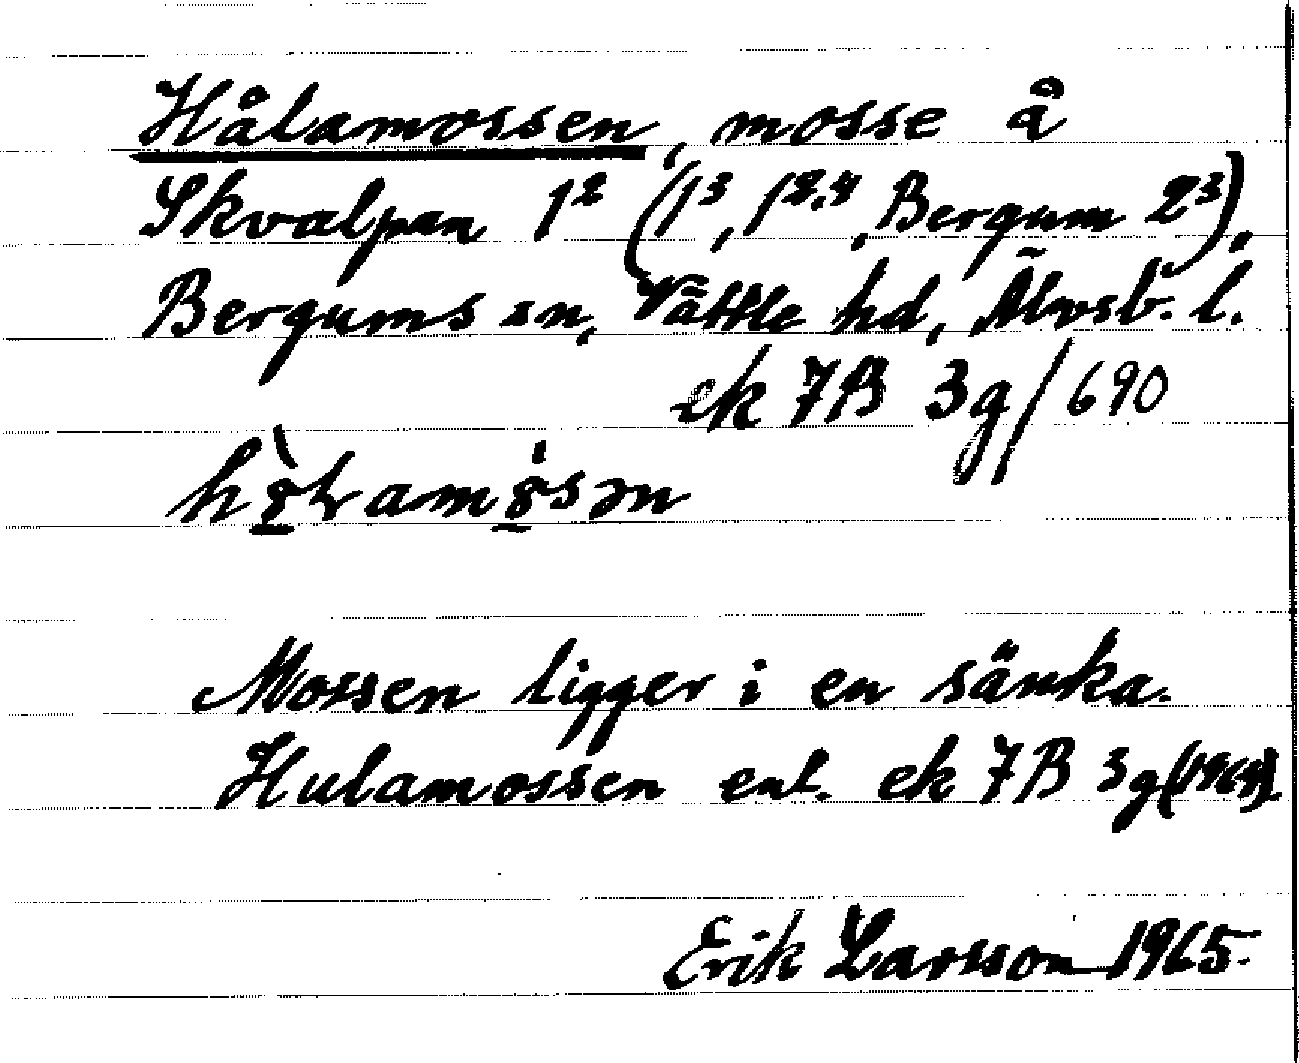 Hålamossen, mosse å
Skvalpan 1² (1³, 1²,⁴, Bergum 2³),
Bergums sn, Vättle hd, Älvsb. l.
ek 7B 3g/690
Mossen ligger i en sänka.
Hulamossen enl. ek 7B 3g
Erik Larsson 1965.